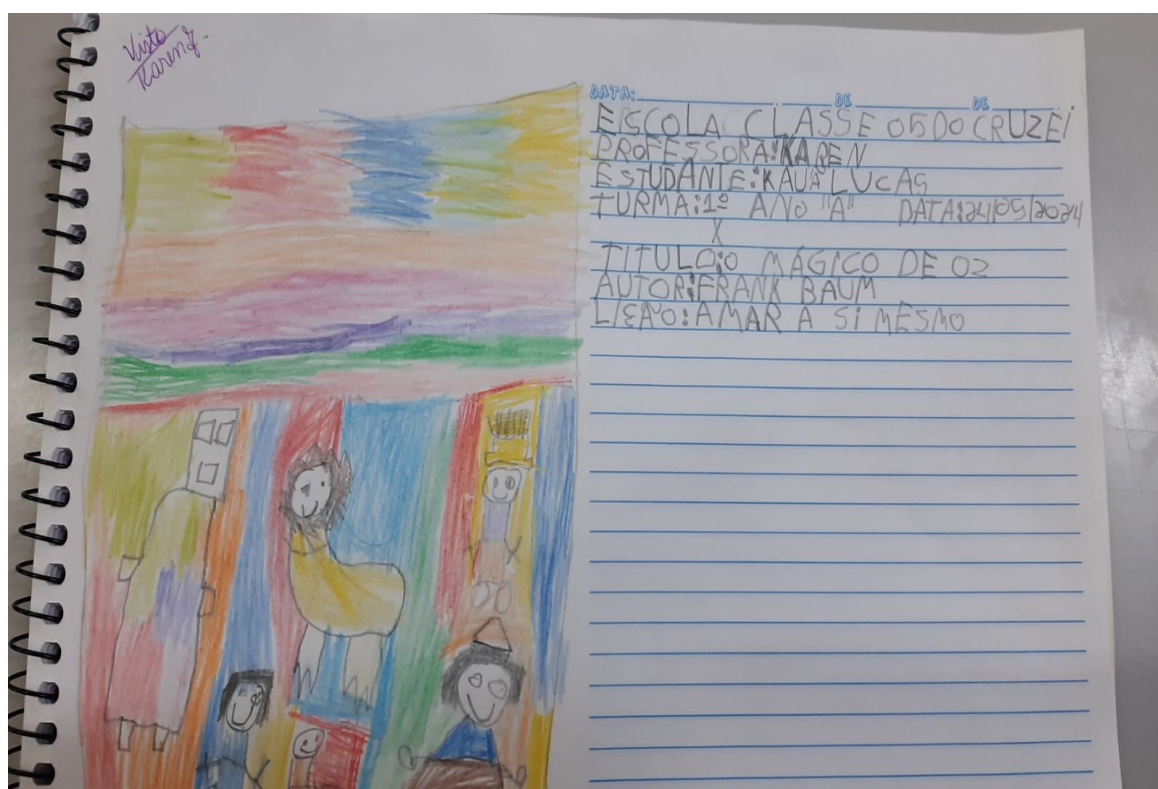 Visto
Karen J.
DATA: DE DE
ESCOLA CLASSE 05 DO CRUZEI
PROFESSORA: KAREN
ESTUDANTE: KAUÃ LUCAS
TURMA: 1º ANO "A" DATA: 24/05/2024
X
TITULO: O MÁGICO DE OZ
AUTOR: FRANK BAUM
LIÇÃO: AMAR A SI MESMO